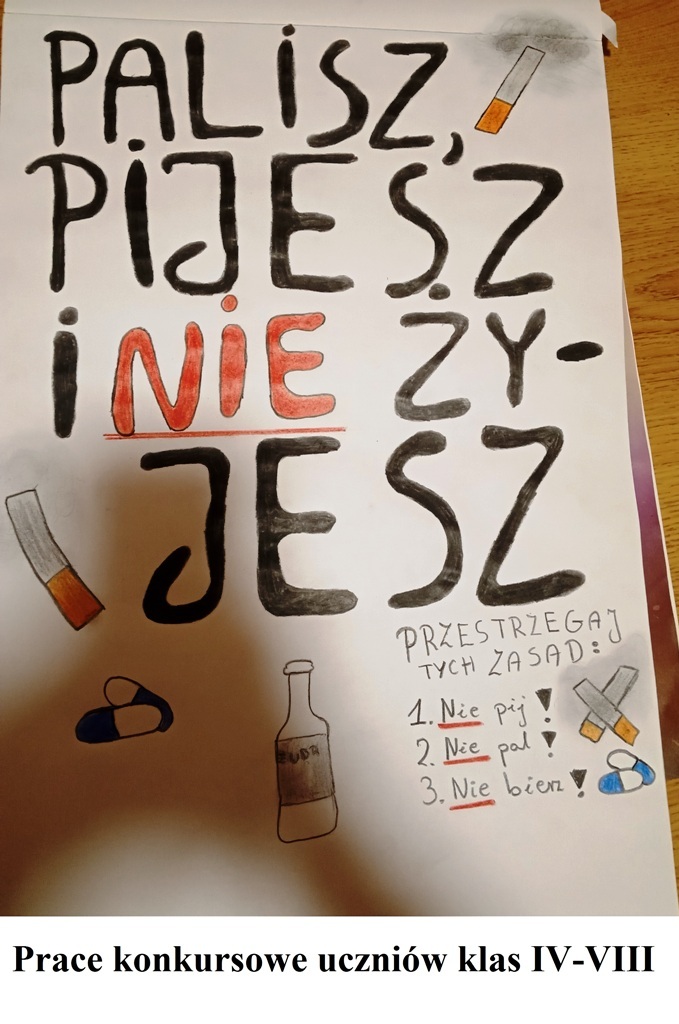 PALiSZ,
PiJESZ
i NiE ŻY-
JESZ
PRZESTRZEGAJ
TYCH ZASAD:
1. Nie pij!
2. Nie pal!
3. Nie bierz!
Prace konkursowe uczniów klas IV-VIII